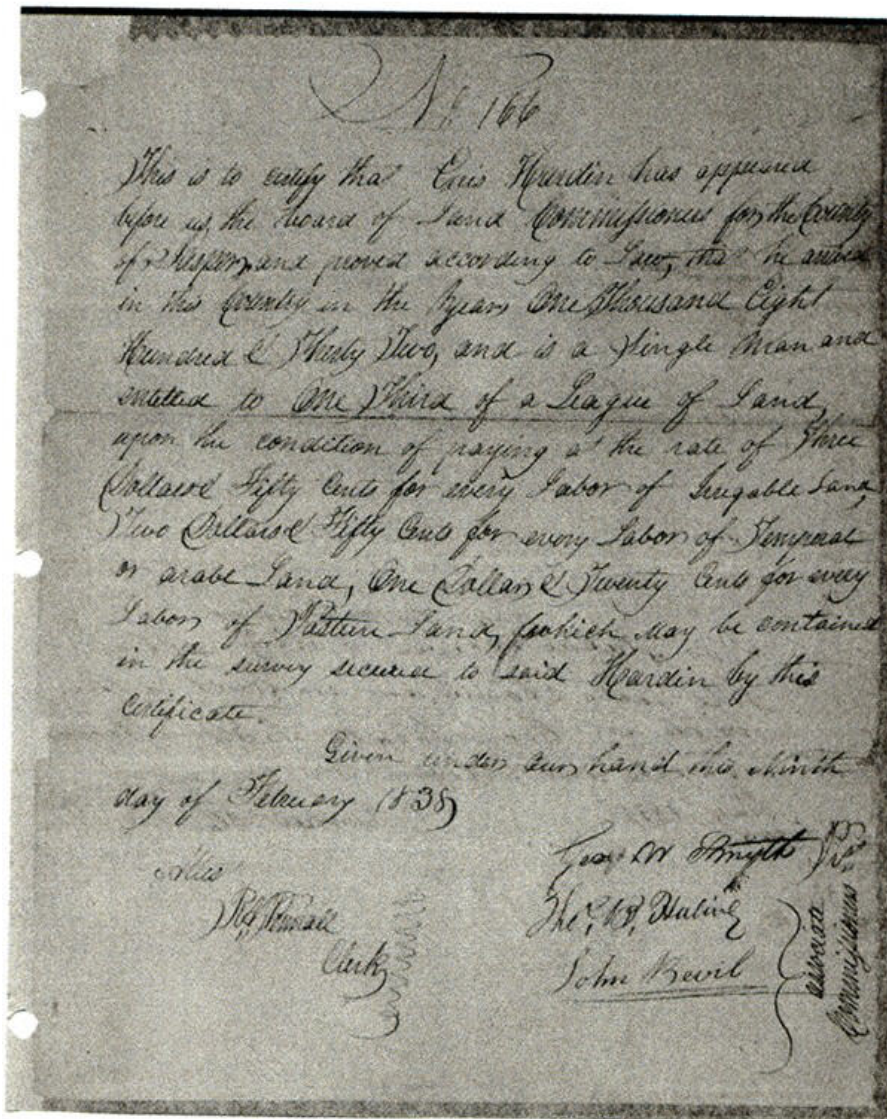 No 166
This is to certify that Enis Hardin has appeared
before us, the board of Land Commissioners for the County
of Jasper, and proved according to Law, that he arrived
in this Country in the Year One Thousand Eight
Hundred & Thirty Two, and is a Single Man and
entitled to One Third of a League of Land,
upon the condition of paying at the rate of Three
Dollars & Fifty Cents for every Labor of Irrigable Land,
Two Dollars & Fifty Cents for every Labor of Temporal
or arable Land, One Dollar & Twenty Cents for every
Labor of Pasture Land, which may be contained
in the survey secured to said Hardin by this
Certificate.
Given under our hand this Ninth
day of February 1838
Attest
Clerk
Geo W Smyth
Thos. B. Huling
John Bevil
associate
Commissioners